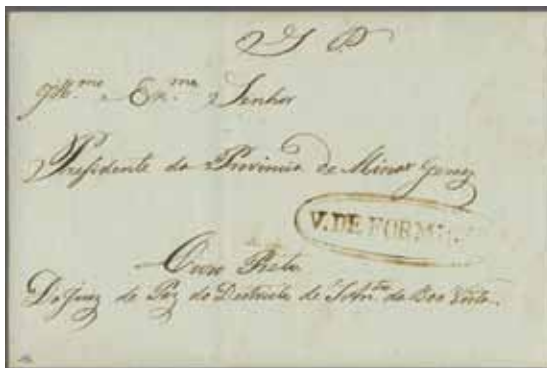 S P
Ill.mo Ex.mo Senhor
Presidente da Provincia de Minas Geraes
V. DE FORMI
Ouro Preto
Do Juiz de Paz do Destricto de S. Ant.o da Boa Vista